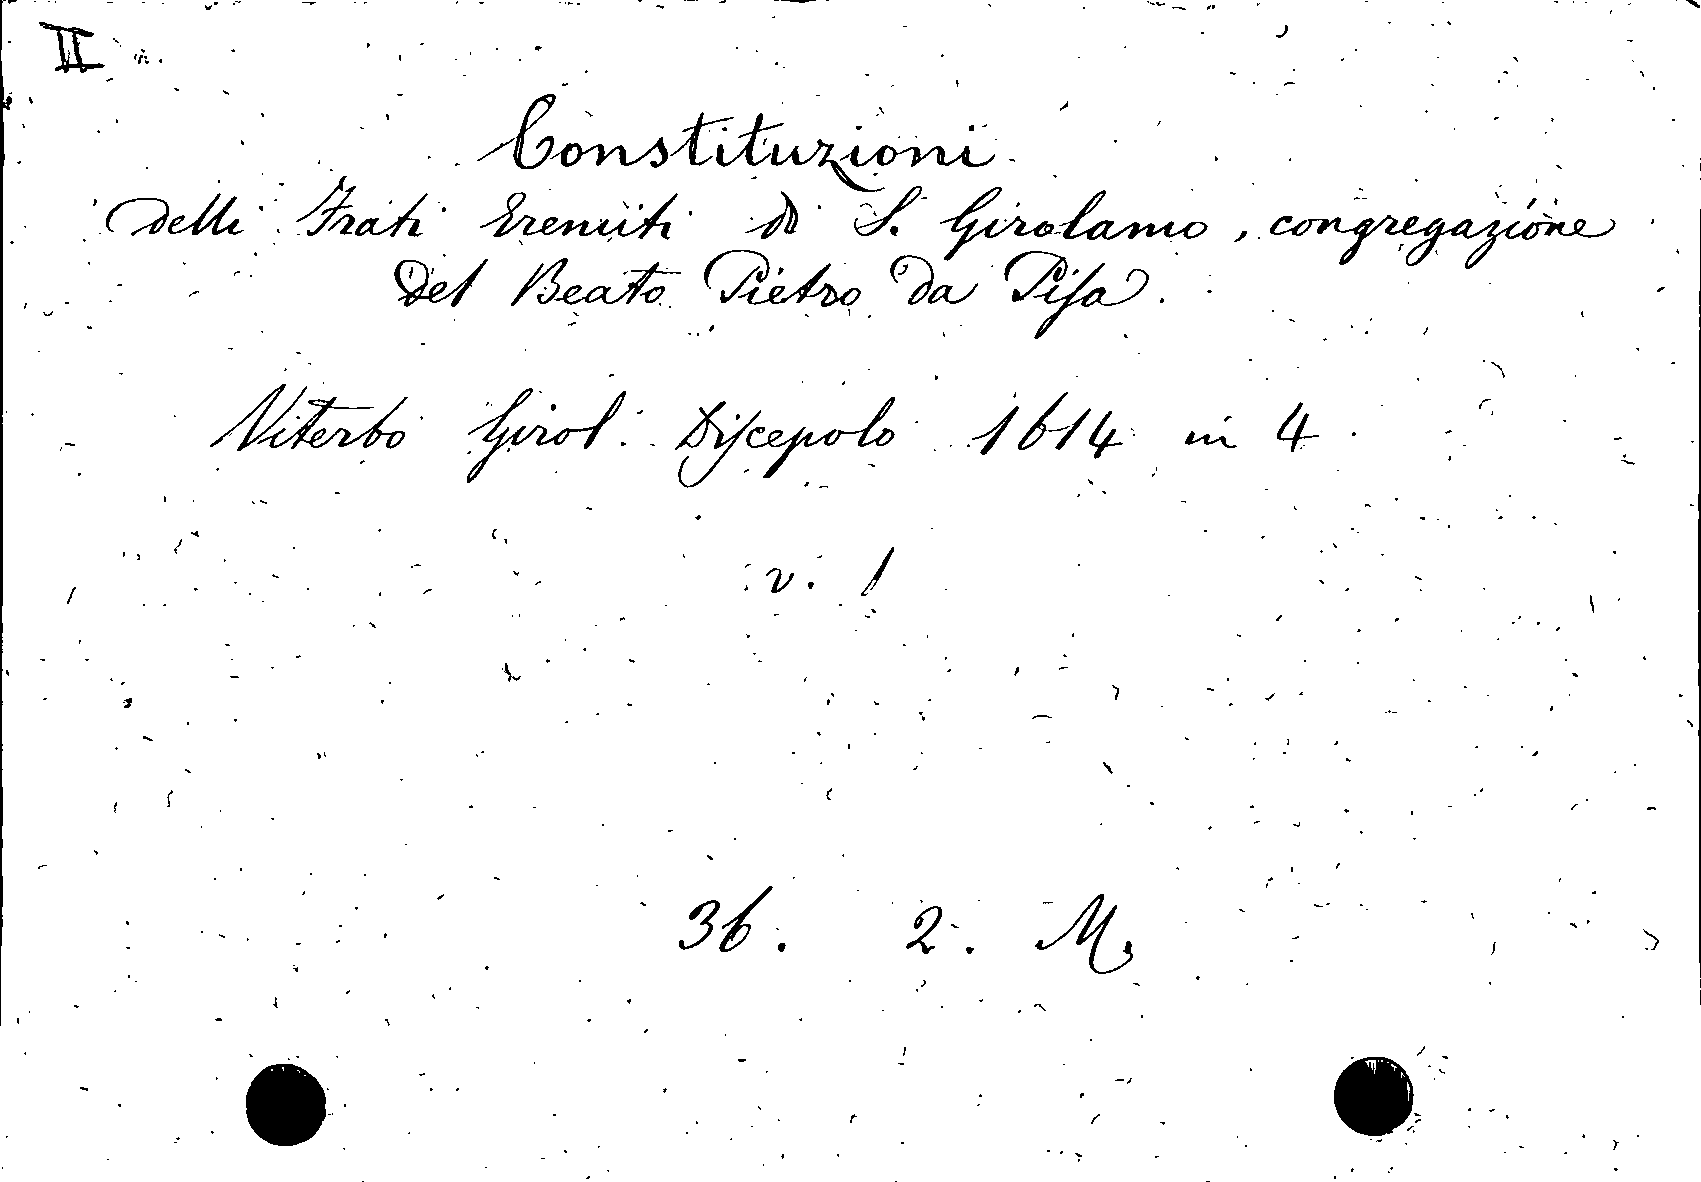 II
Constituzioni
delli Frati Eremiti di S. Girolamo, congregazione
del Beato Pietro da Pisa.
Viterbo Girol. Discepolo 1614 in 4
v. 1
36. 2. M.